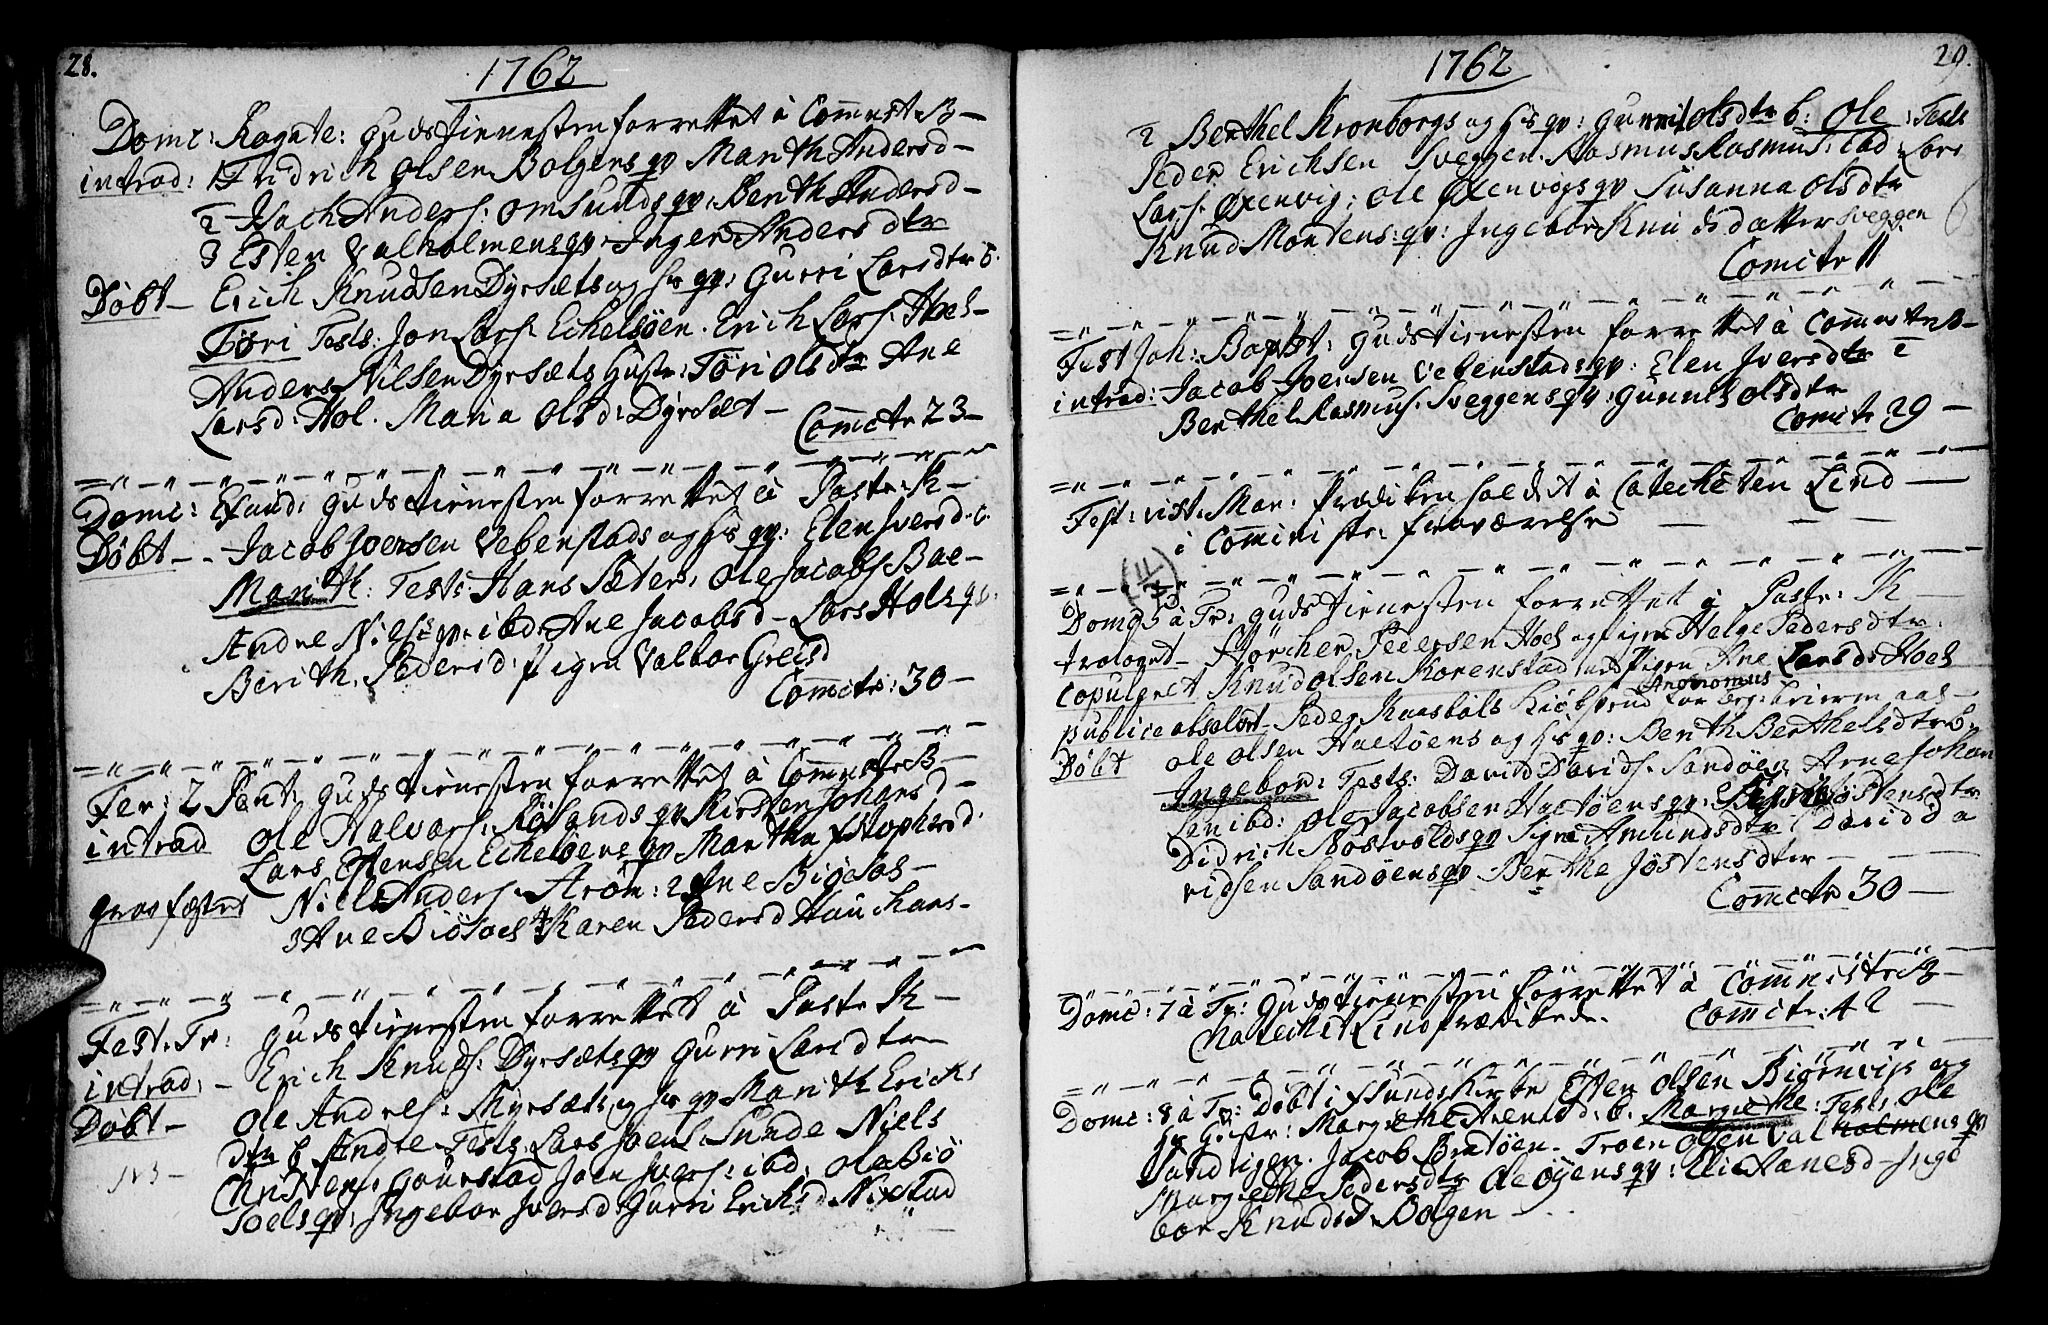 28.
1762
Domc: Rogate: Gudstienesten forrettet à Commistr B-
introd: 1 Fridrich Olsen Bolgens qv Marith Andersd-
2 Isach Anders: Omsunds qv: Berith Andersd-
3 Esten Valholmens qv: Inger Anders dtr
Döbt- Erich Knudsen Dyrsæts og hs qv: Gurri Larsdtr b.
Töri Tests: Jon Lars: Echelsöen. Erich Lars: Hoel-
Anders Nilsen Dyrsæts Hustr: Töri Olsdtr Ane
Larsd: Hol. Maria Olsd: Dyrsæt- Comctr 23-
Domc: Exaud: Gudstienesten forrettet à Pastr: K-
Döbt-- Jacob Iversen Vebenstads og hs qv: Elen Iversd. b.
Marith: Tests: Hans Sæter, Ole Jacobs Bae-
Andre Nilss qv: ibd: Ane Jacobsd- Lars Hols qv:
Berith. Pedersd: Pigen Valbor Greisd
Comctr: 30-
Fer: 2 Pent: Gudstienesten forrettet à Commistr B-
introd Ole Halvors: RöSands qv Kirsten Johansd-
Lars Estensen Echelöens qv Martha fstophersd:
grasfæstet Niels Anders: Arön: 2 Ane Biösos-
3 Ane Biösoes 4 Karen Pedersd Hau Hans-
Fest: Tr: Gudstienesten forrettet à Pastr K-
introd:- Erich Knuds: Dyrsæts qv Gurri Larsdtr
Döbt- Ole Andres: Myrsæts og hs qv Marith Erichs
dtr b Andre Tests: Lars Joens Sunde Niels
Christens: Gourstad Joen Ivers: ibd: Ole Biö
Soels qv: Ingebor Iversd: Gurri Erichsd Nixstad
1762
29.
2 Berthel Kronborgs og hs qv: Gunnil Olsdtr b: Ole: Tests
Peder Erichsen Sveggen. Rasmus Rasmus: ibd: Lars
Lars: Öxenvig; Ole Öxenvigs qv Susanna Olsdtr
Knud Mortens: qv: Ingebor Knudsdatter Sveggen
Comctr 11
Fest Joh: Bapt: Gudstienesten forrettet à Commistr B-
introd: Jacob Iversen Vebenstads qv: Elen Iversdtr 2
Berthel Rasmus: Sveggens qv: Gunnil Olsdtr
Comctr 29-
Fest: vist: Mar: Prædiken holdet à Catecheten Lind-
i Comministr: fraværelse
Domc 5 à Tr: Gudstienesten forrettet à Pastr: K-
trolovet- Störcher Pedersen Hoel og Pigen Helge Pedersdtr:
Copuleret Knud Olsen Korenstad med Pigen Ane Larsd: Hoel
Anonomus
publice absolvt- Peder Kaasböls Kiöbsvend for beg: leiermaal-
Döbt Ole Olsen Haetöens og hs qv: Berith Berthelsdtr b.
Ingebor: Tests: David Davids. Sandöen. Arne Johan
sen ibd: Ole Jacobsen Haetöens qv: Jöstensdtr
Didrich Nostvolds qv Sigri Amundsdtr: David Da
vidsen Sandöens qv Berthe Jöstensdtr
Comctr 30-
Domc: 7 à Tr: Gudstienesten forrettet à Commistr: B-
Catechet Lind prædikede. Comctr: 42
Domc: 8 à Tr: Döbt i fSunds Kirke Esten Olsen Biörnvig og
hs Hustr: Margrethe Arentsd: b. Margrethe: Tests: Ole
Sandvigen. Jacob Bratöen. Troen Olsen Valholmens qv:
Margrethe Pedersdtr Ole Öyens qv: Elie Hanesd- Inge
bor Knudsd. Bolgen